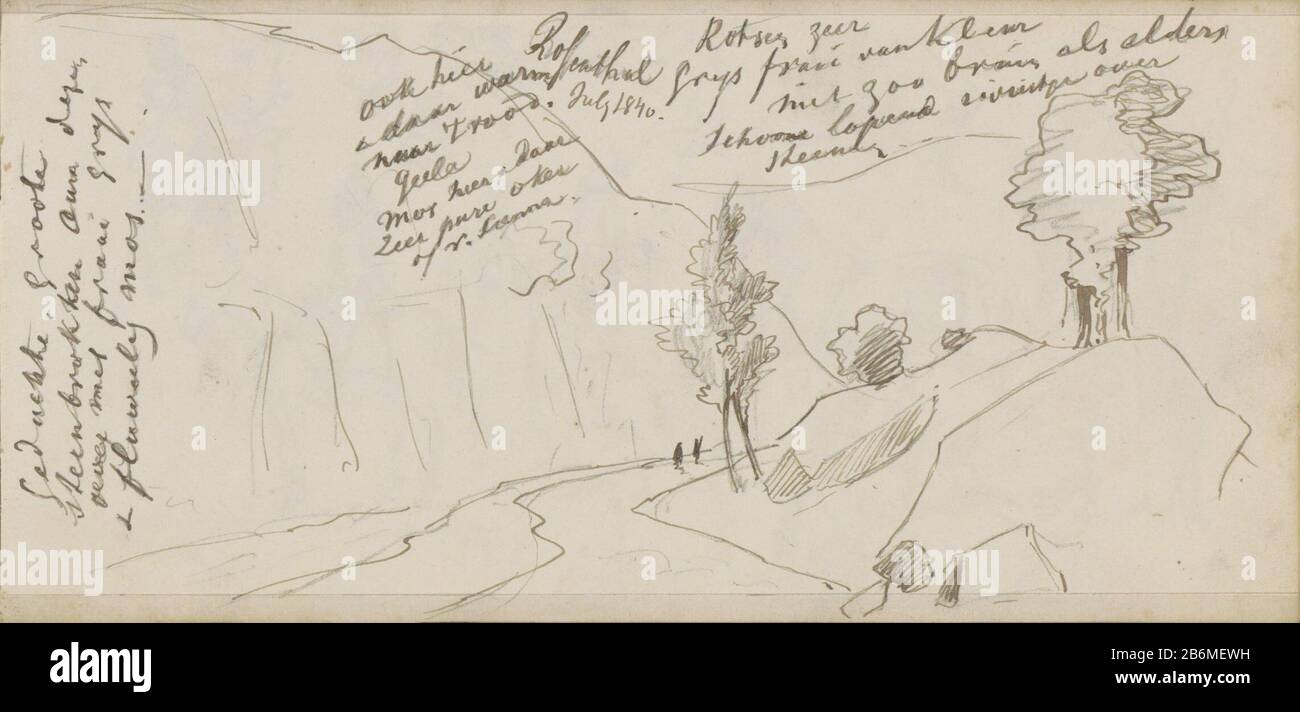 Rosenthal
July 1840.
ook hier
& daar warm
naar 't rood.
geele
mos hier & daar
zeer pure oker
of v. Sienna.
Rotsen zeer
grys fraai van kleur
niet zoo bruin als elders
Schoone lopend riviertje over
steenen
Geduchte Groote
steenbrokken aan dezen
over met fraai grys
& fluweely mos.
alamy
Image ID: 2B6MEWH
www.alamy.com